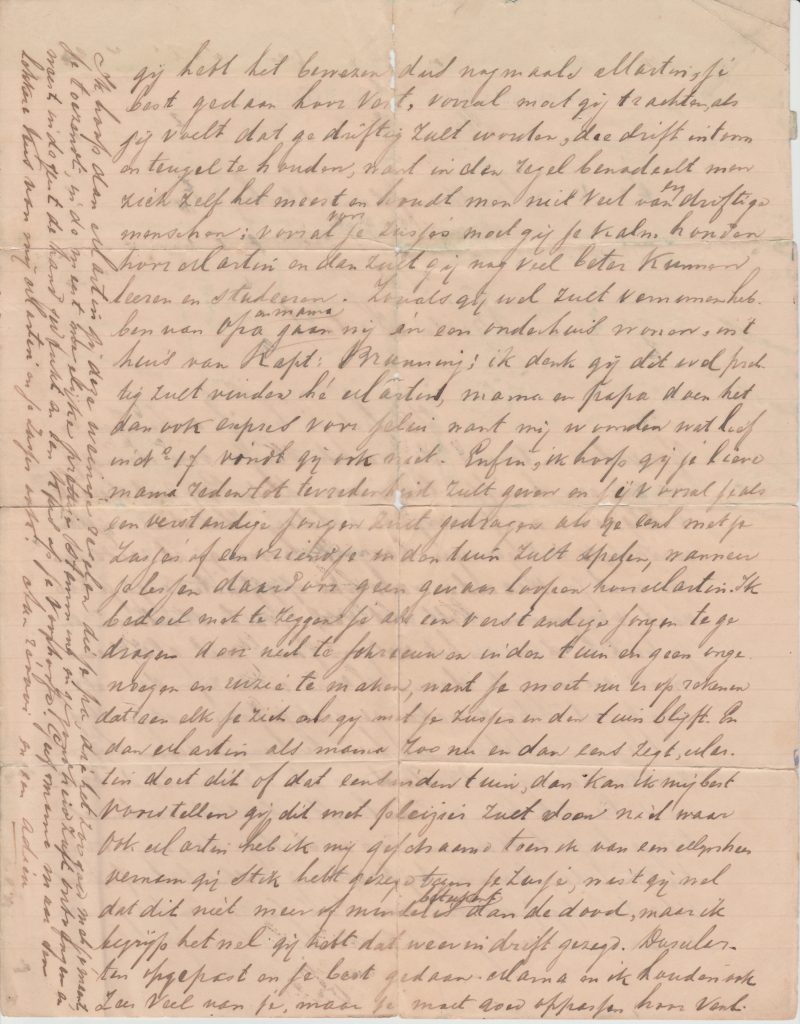 gij hebt het bewezen dus nogmaals Martin, je
best gedaan hoor Vent, vooral moet gij trachten, als
gij voelt dat ge driftig zult worden, die drift in toom
en teugel te houden, want in den regel benadeelt men
zich zelf het meest en houdt men niet veel van driftige
menschen; vooral voor je zusjes moet gij je kalm houden
hoor Martin en dan zult gij nog veel beter kunnen
leeren en studeeren. Zooals gij wel zult vernomen heb-
ben van Opa en mama gaan wij in een ander huis wonen, in 't
huis van Kapt: Brunning; ik denk gij dit wel prch-
tig zult vinden hé Martin, mama en papa doen het
dan ook expres voor jelui want wij woonden wat lief
in No 17 vondt gij ook niet. Enfin, ik hoop gij je lieve
mama reden tot tevredenheid zult geven en gij vooral je als
een verstandige jongen zult gedragen als ge eens met je
zusjes of een vriendje in den tuin zult spelen, wanneer
je lessen daardoor geen gevaar loopen hoor Martin. Ik
bedoel met te zeggen je als een verstandige jongen te ge
dragen door niet te schreeuwen in den tuin en geen onge
noegen en ruzie te maken, want je moet nu er op rekenen
dat een elk je ziet als gij met je zusjes in den tuin blijft. En
dan Martin als mama zoo nu en dan eens zegt, Mar-
tin doet dit of dat eens in den tuin, dan kan ik mij best
voorstellen gij dit met pleizier zult doen niet waar
Ook Martin heb ik mij geschaamd toen ik van een
vernam gij stik hebt gezegd tegen je zusje, weet gij wel
dat dit niet meer of minder is dan de dood, maar ik
begrijp het wel gij hebt dat weer in drift gezegd. Dus Mar-
tin opgepast en je best gedaan. Mama en ik houden ook
zoo veel van je, maar je moet goed oppassen hoor Vent.
Ik hoop dan Martin gij deze weinige regelen die je pa, die het zoo goed met je meent,
je toezendt, in de meest mogelijke gezondheid zult ontvangen en
weest in de geest de hand gedrukt en den op je Geef mama maar een
lekkere kus van mij Martin en je zusjes ook. Dan en een adieu